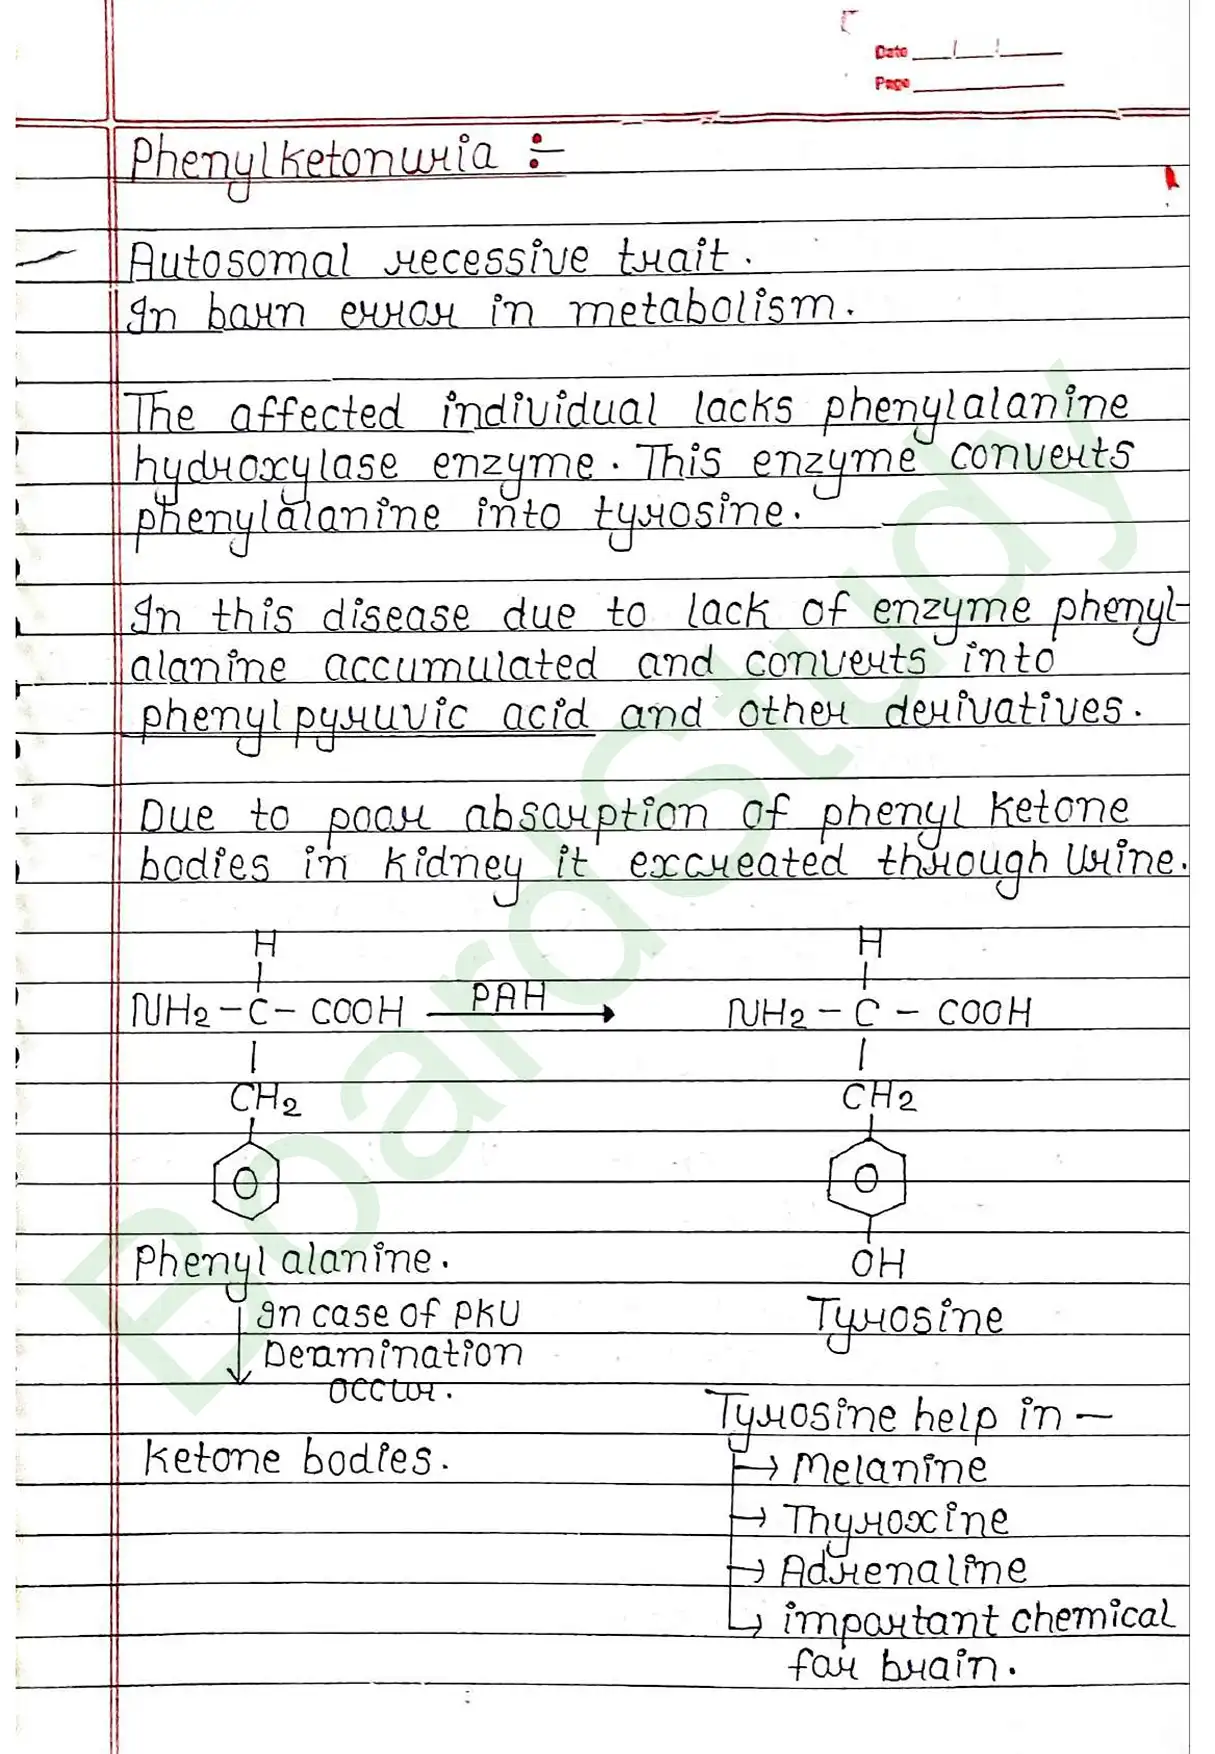 Date
Page
Phenylketonuria :-
Autosomal recessive trait.
In born error in metabolism.
The affected individual lacks phenylalanine
hydroxylase enzyme. This enzyme converts
phenylalanine into tyrosine.
In this disease due to lack of enzyme phenyl-
alanine accumulated and converts into
phenylpyruvic acid and other derivatives.
Due to poor absorption of phenyl ketone
bodies in kidney it excreated through Urine.
H H
NH2 - C - COOH PAH → NH2 - C - COOH
CH2 CH2
OH
Phenyl alanine.
In case of PKU
Tyrosine
Deamination
occur.
Tyrosine help in -
Ketone bodies.
→ Melanine
→ Thyroxine
→ Adrenaline
→ important chemical
for brain.
BoardStudy